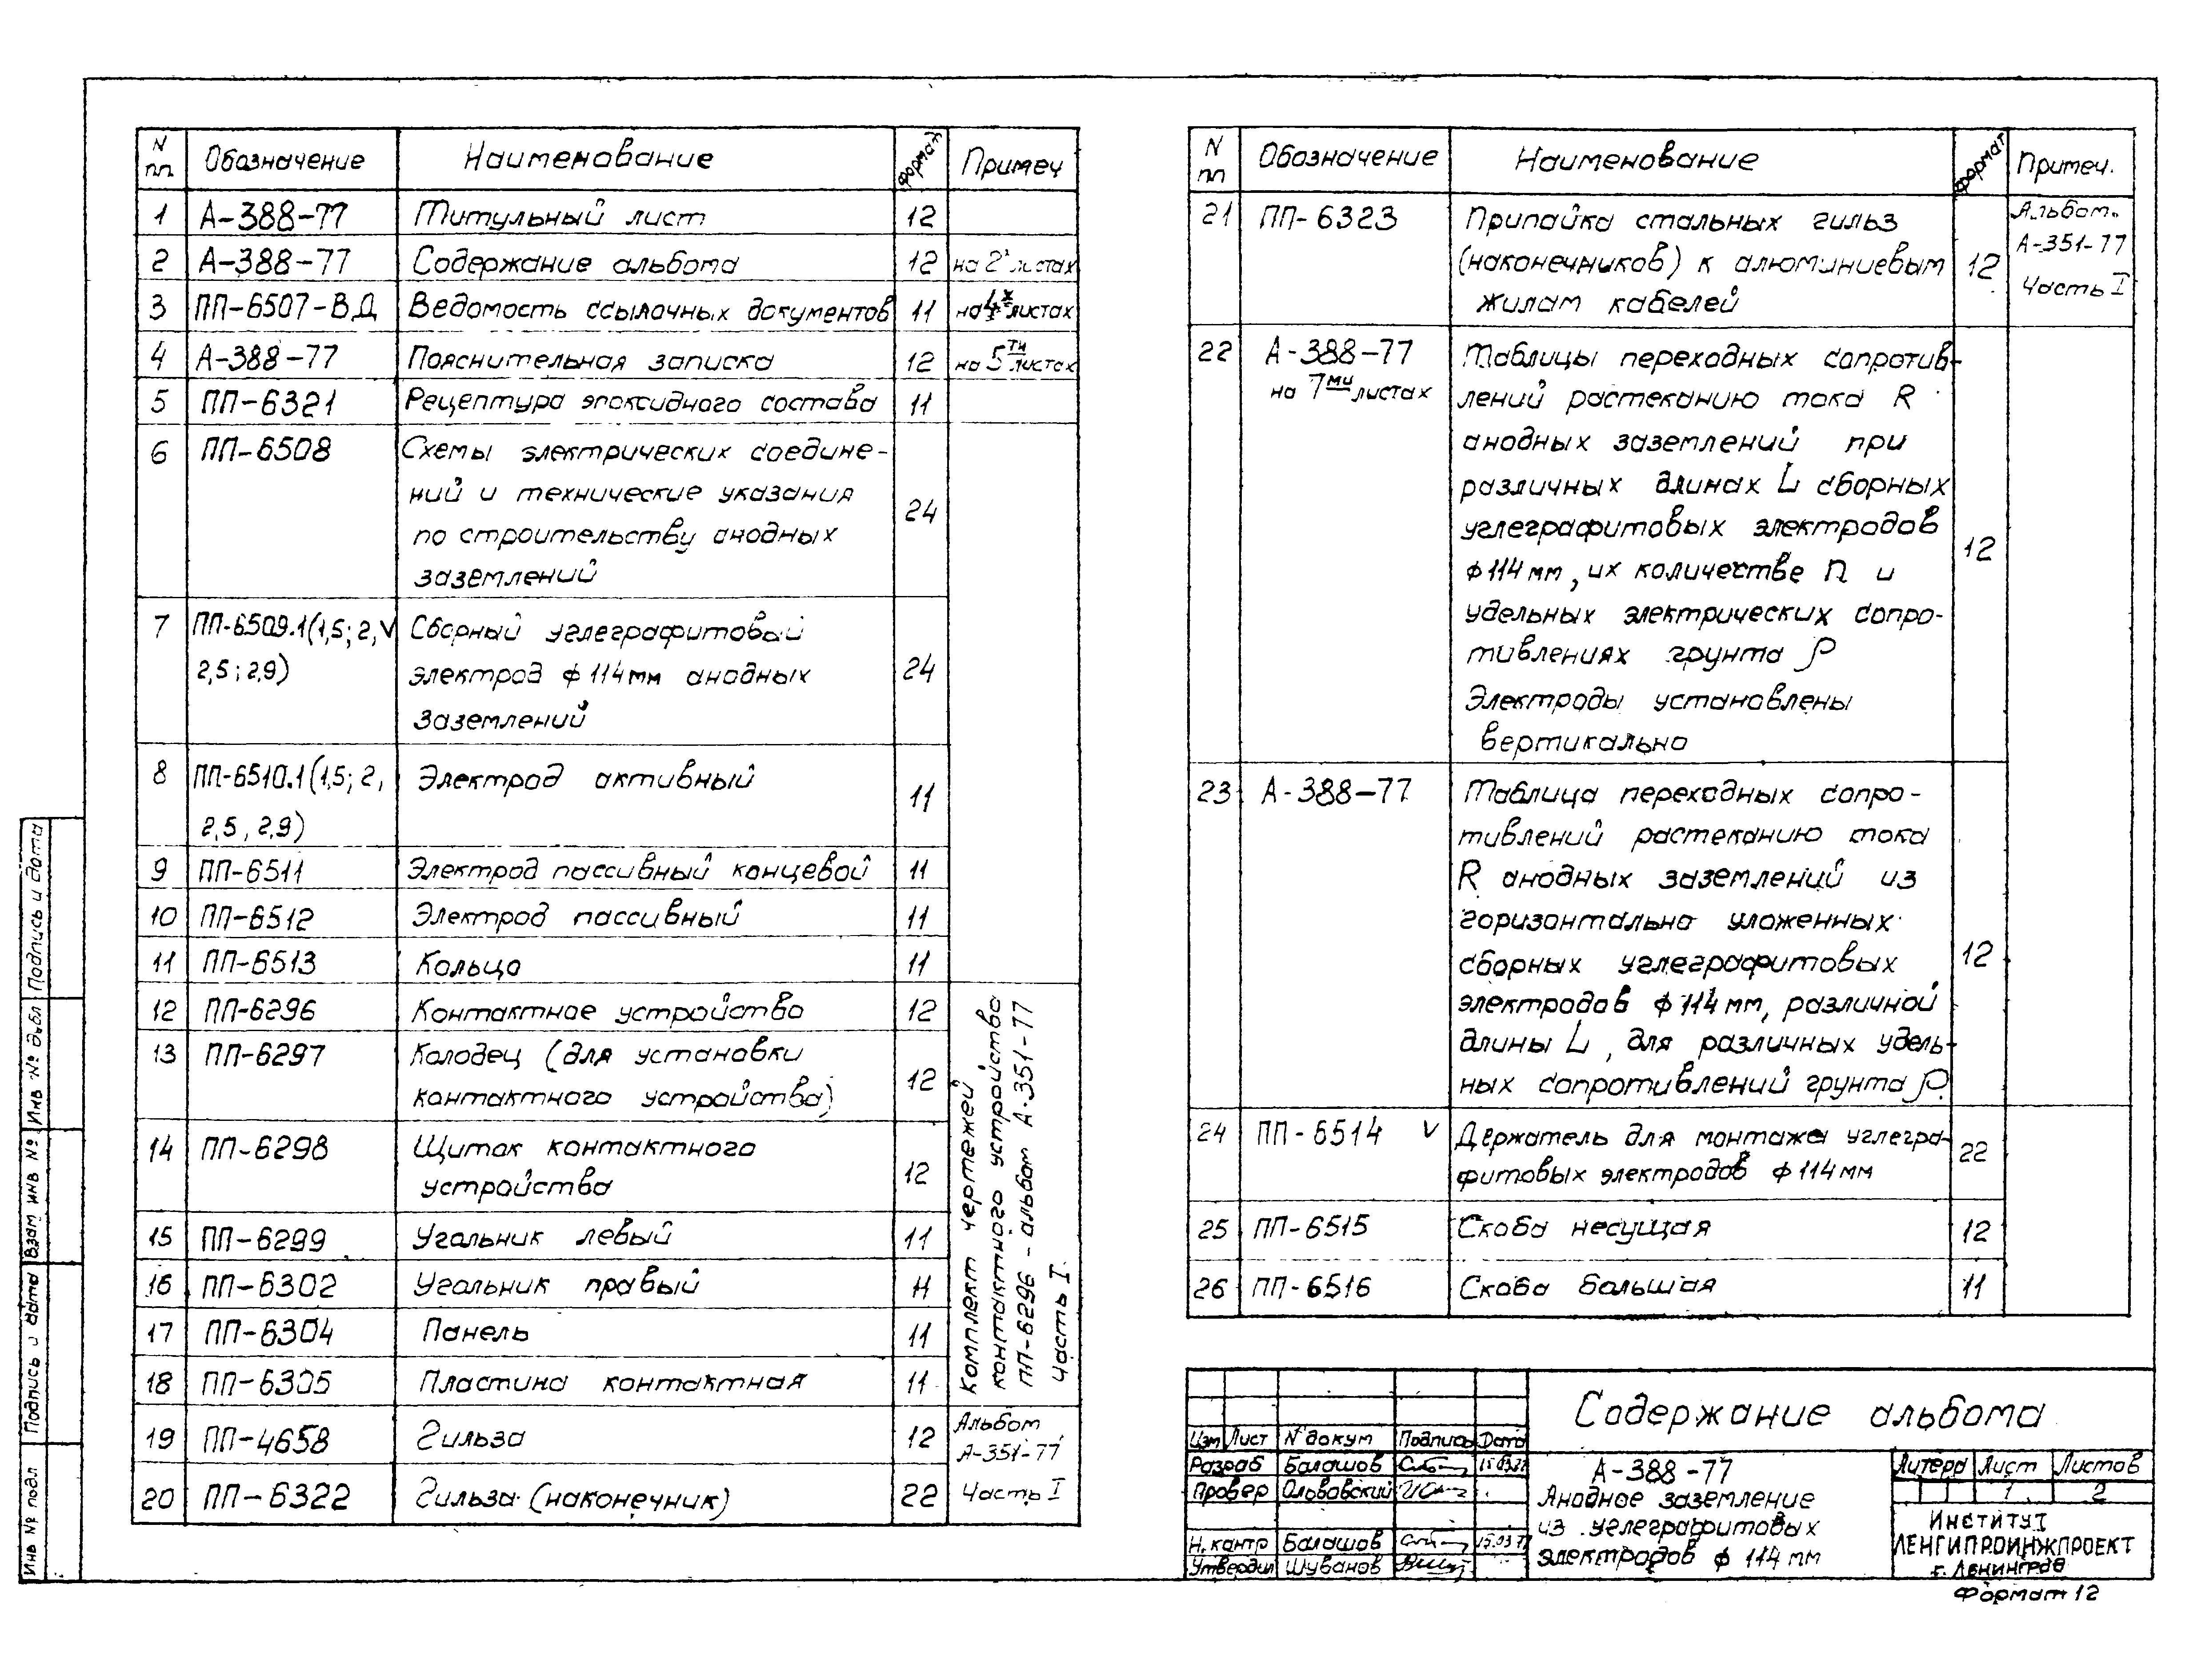 N пп. Обозначение Наименование Формат Примеч
1 А-388-77 Титульный лист 12
2 А-388-77 Содержание альбома 12 на 2х листах
3 ПП-6507-ВД Ведомость ссылочных документов 11 на 4х листах
4 А-388-77 Пояснительная записка 12 на 5ти листах
5 ПП-6321 Рецептура эпоксидного состава 11
6 ПП-6508 Схемы электрических соедине-
ний и технические указания
24
по строительству анодных
заземлений
7 ПП-6509.1(1,5; 2, V Сборный углеграфитовый
2,5; 2,9) электрод ф 114мм анодных 24
заземлений
8 ПП-6510.1(1,5; 2, Электрод активный 11
2,5, 2,9)
9 ПП-6511 Электрод пассивный концевой 11
10 ПП-6512 Электрод пассивный 11
11 ПП-6513 Кольцо 11
12 ПП-6296 Контактное устройство 12
13 ПП-6297 Колодец (для установки
контактного устройства) 12
14 ПП-6298 Щиток контактного
устройства 12
15 ПП-6299 Угольник левый 11
16 ПП-6302 Угольник правый 11
17 ПП-6304 Панель 11
18 ПП-6305 Пластина контактная 11
Комплект чертежей
контактного устройства
ПП-6296 - альбом А-351-77
Часть I.
19 ПП-4658 Гильза 12 Альбом
А-351-77
20 ПП-6322 Гильза (наконечник) 22 Часть I
N пп Обозначение Наименование Формат Примеч.
21 ПП-6323 Припайка стальных гильз Альбом.
(наконечников) к алюминиевым 12 А-351-77
жилам кабелей Часть I
22 А-388-77 Таблицы переходных сопротив-
на 7ми листах лений растеканию тока R
анодных заземлений при
различных длинах L сборных
углеграфитовых электродов
12
ф 114мм, их количестве n и
удельных электрических сопро-
тивлениях грунта ρ
Электроды установлены
вертикально
23 А-388-77 Таблица переходных сопро-
тивлений растеканию тока
R анодных заземлений из
горизонтально уложенных
сборных углеграфитовых 12
электродов ф 114мм, различной
длины L, для различных удель-
ных сопротивлений грунта ρ.
24 ПП-6514 V Держатель для монтажа углегра-
фитовых электродов ф 114мм 22
25 ПП-6515 Скоба несущая 12
26 ПП-6516 Скоба большая 11
Содержание альбома
Изм Лист N докум Подпись Дата
Разраб Балашов 15.03.77
Провер Ольвовский
Н. контр Балашов 15.03.77
Утвердил Шуванов
А-388-77
Анодное заземление
из углеграфитовых
электродов ф 114 мм
Литера Лист Листов
1 2
Институт
ЛЕНГИПРОИНЖПРОЕКТ
г. Ленинград
Формат 12
Подпись и дата
Инв № дубл
Взам инв №
Подпись и дата
Инв № подл